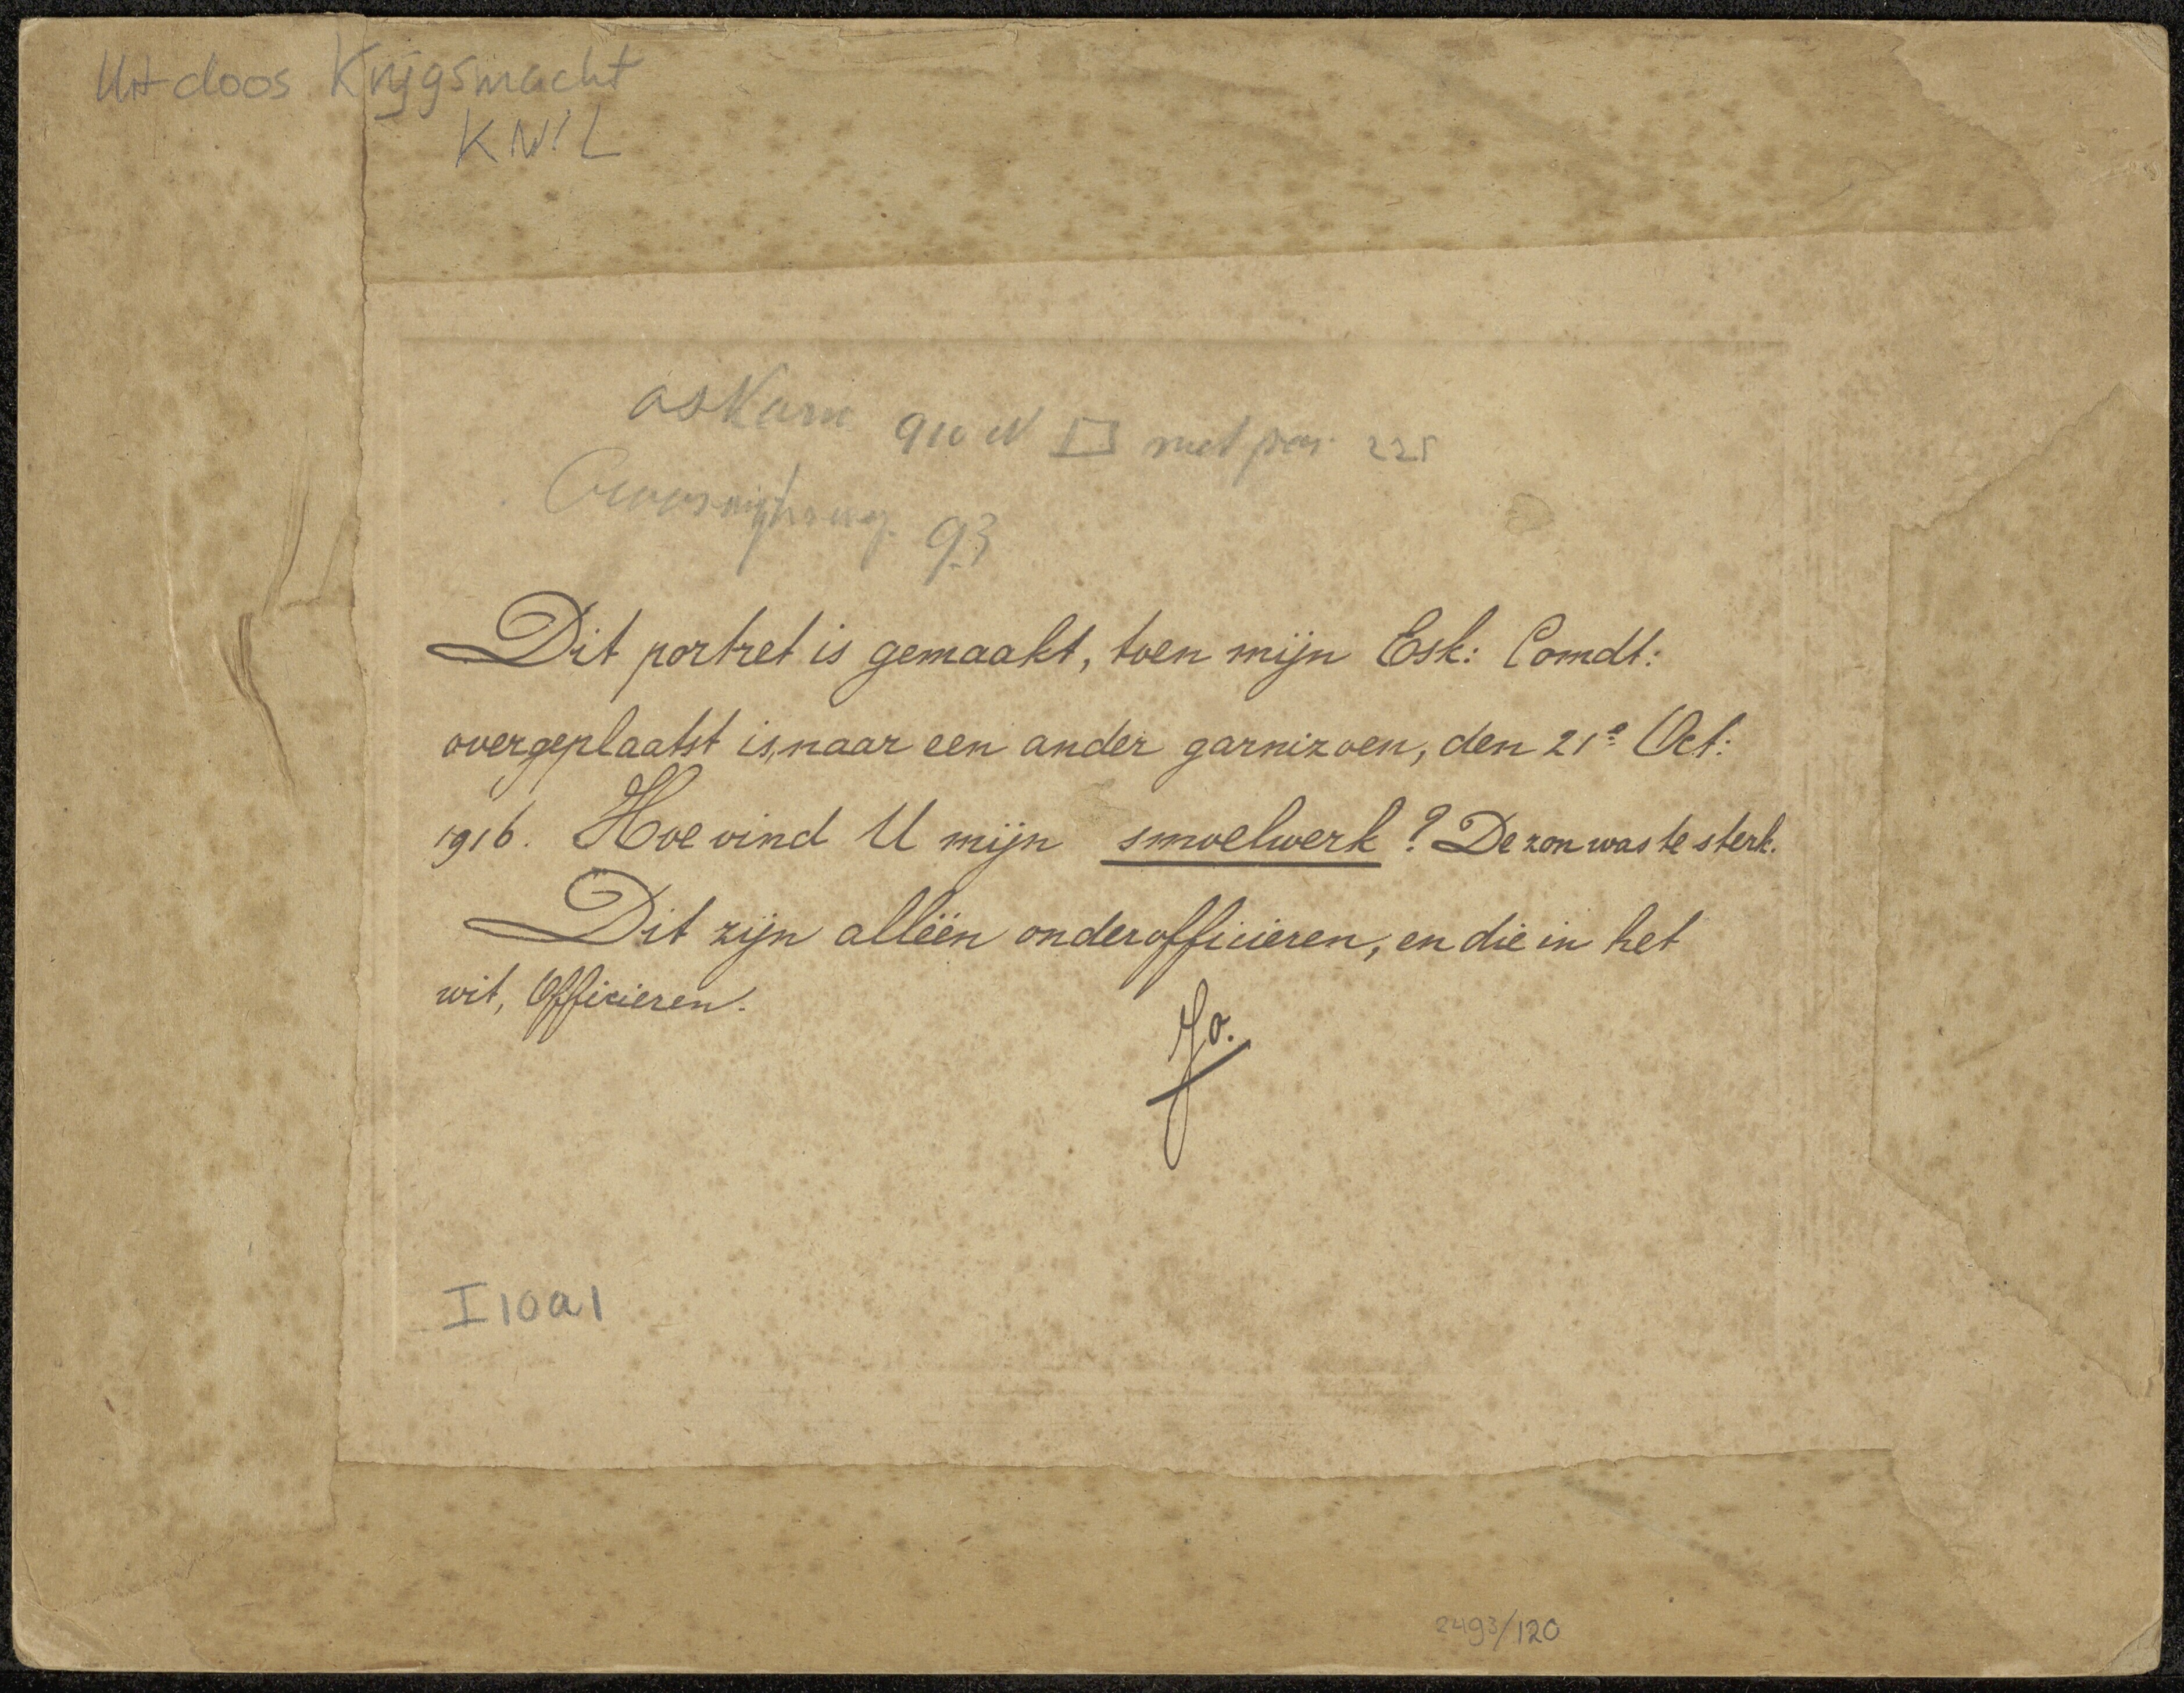 Uit doos Krijgsmacht
KNIL
met pas. 225
93
Dit portret is gemaakt, toen mijn Esk: Comdt:
overgeplaatst is, naar een ander garnizoen, den 21e Oct:
1916. Hoe vind U mijn smoelwerk? De zon was te sterk.
Dit zijn allëën onderofficieren, en die in het
wit, Officieren.
Jo.
I 10a1
2493/120